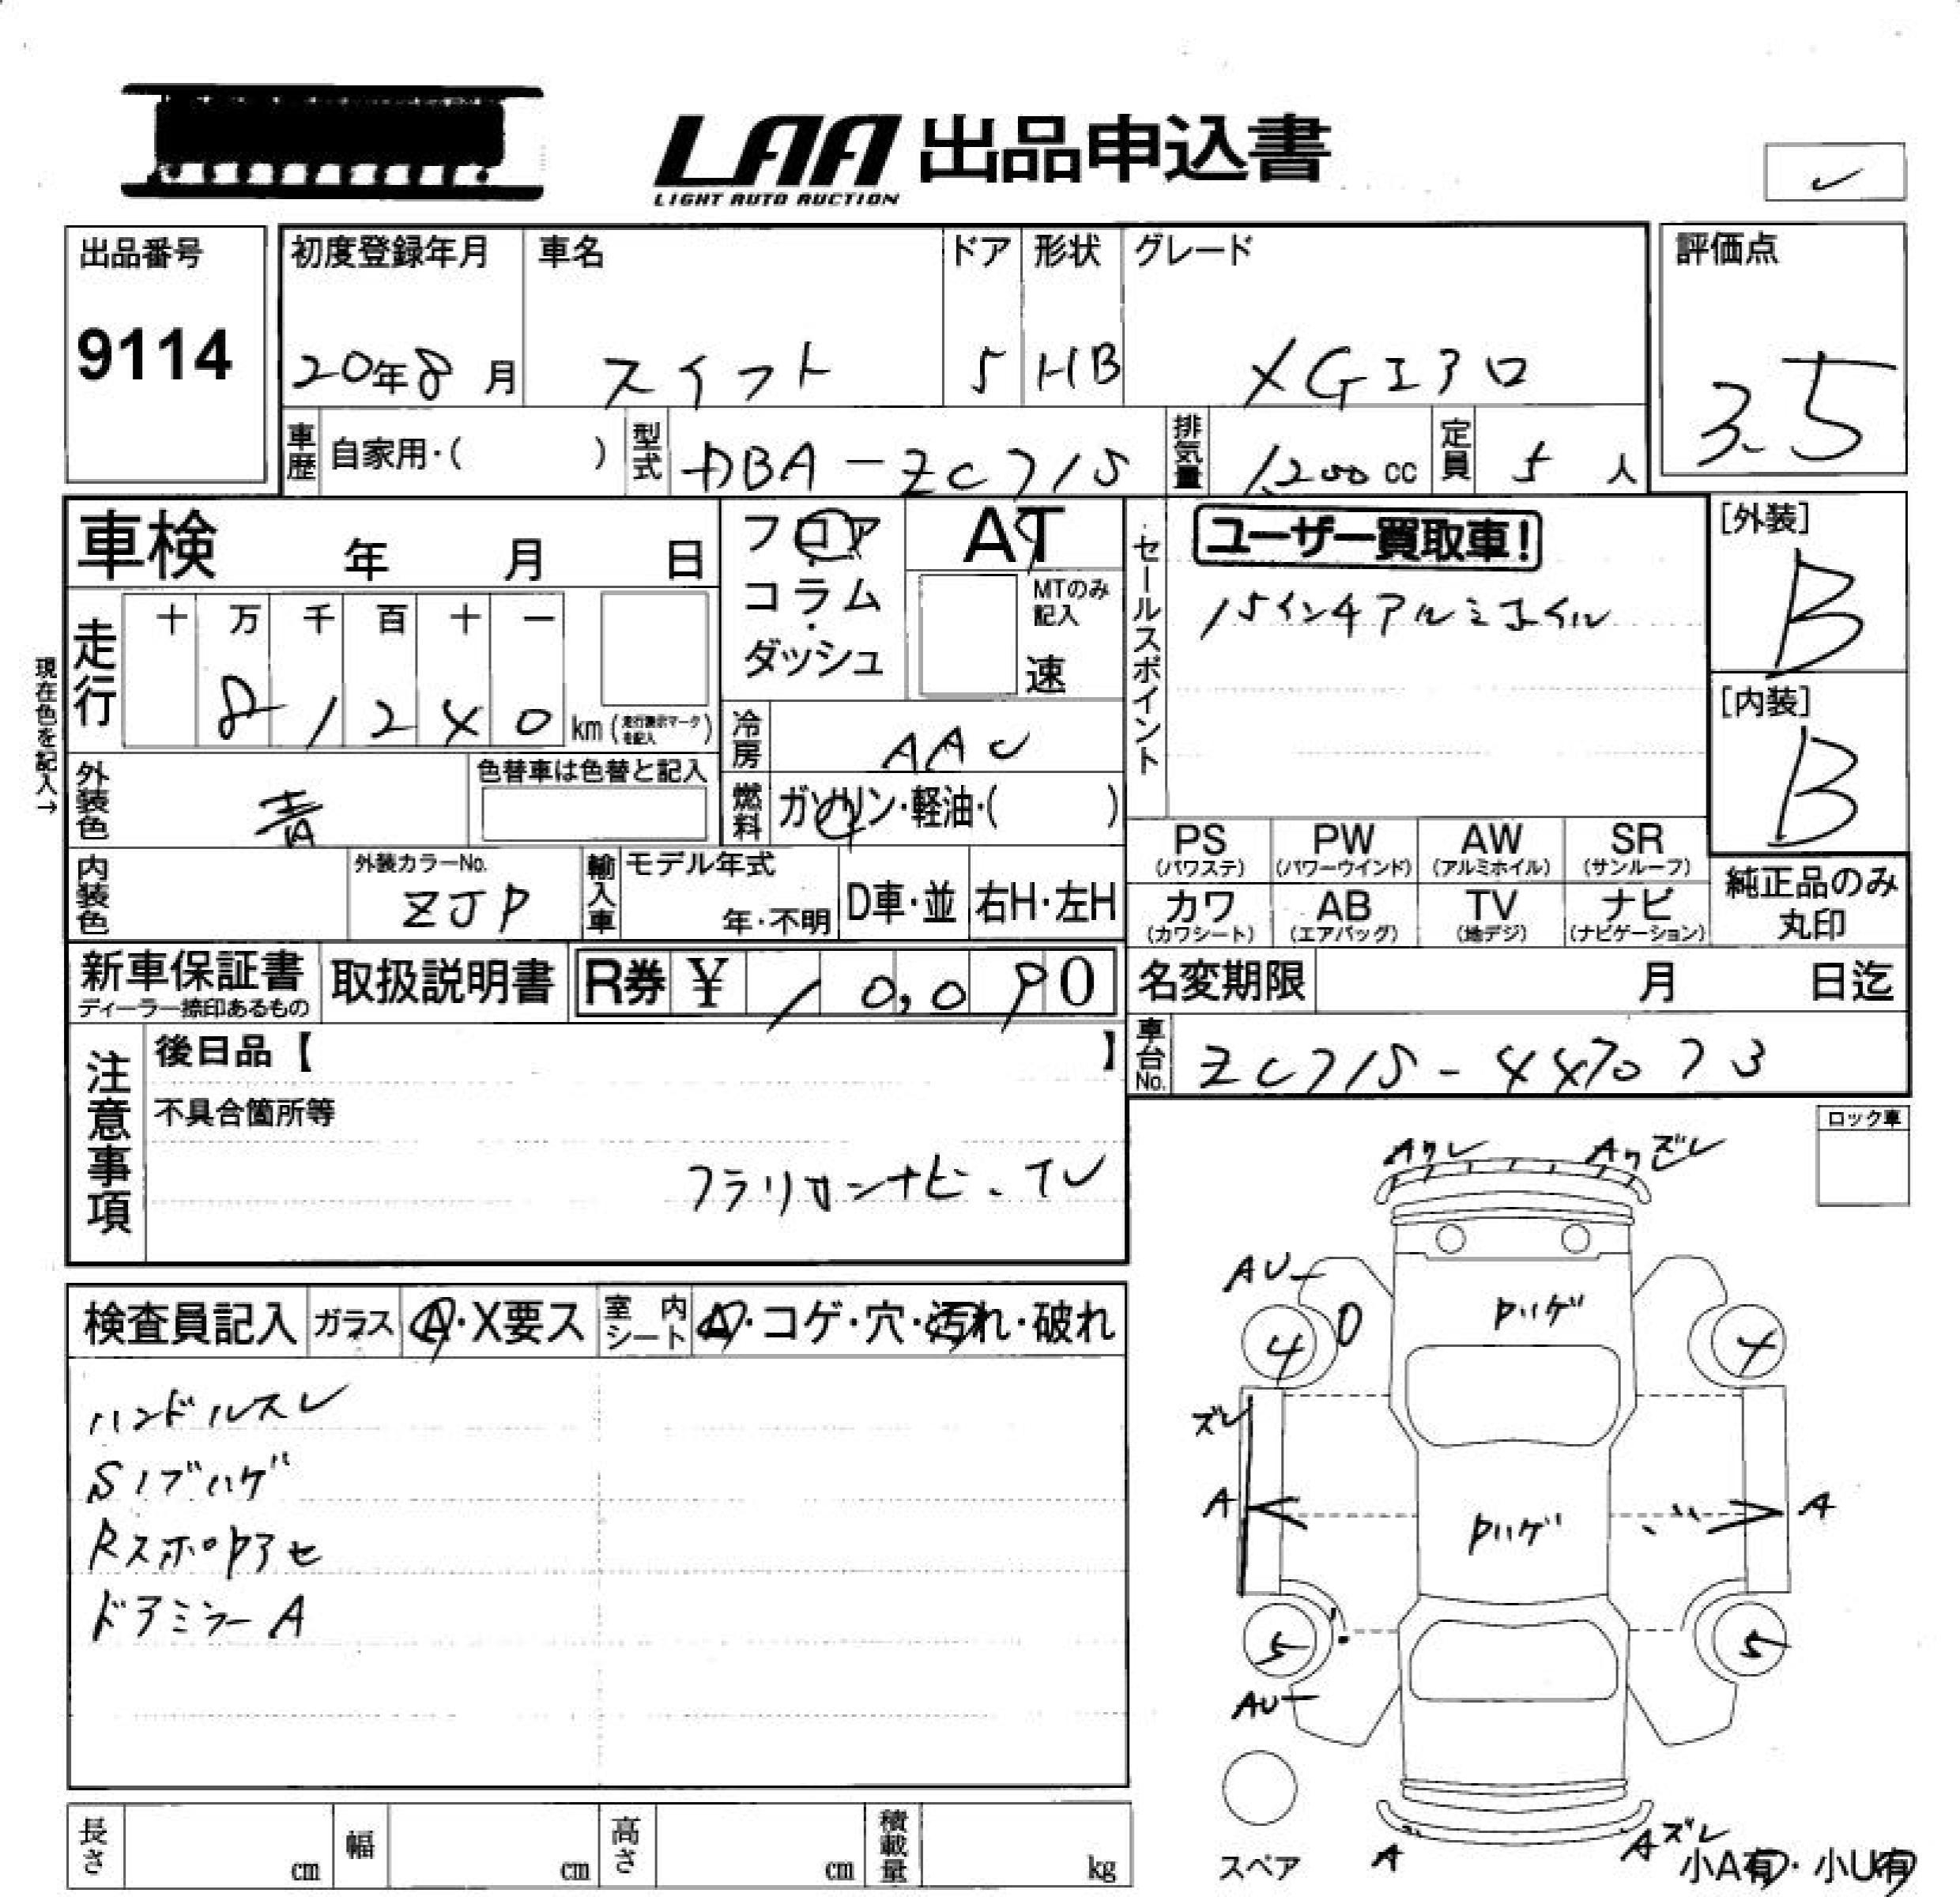 LAA 出品申込書
LIGHT AUTO AUCTION
出品番号
9114
初度登録年月
20年8月
車名
スイフト
ドア
5
形状
HB
グレード
XGエアロ
評価点
3.5
車歴
自家用・( )
型式
DBA-ZC71S
排気量
1,200 cc
定員
5 人
車検 年 月 日
フロア
コラム
ダッシュ
AT
MTのみ
記入
速
セールスポイント
ユーザー買取車!
15インチアルミホイル
[外装]
B
[内装]
B
現在色を記入→
走行
十 万 千 百 十 一
8 1 2 4 0 km (走行表示マークを記入)
冷房
AAC
外装色
青
色替車は色替と記入
燃料
ガソリン・軽油・( )
PS
(パワステ)
PW
(パワーウインド)
AW
(アルミホイル)
SR
(サンルーフ)
カワ
(カワシート)
AB
(エアバッグ)
TV
(地デジ)
ナビ
(ナビゲーション)
純正品のみ
丸印
内装色
外装カラーNo.
ZJP
輸入車
モデル年式
年・不明
D車・並
右H・左H
新車保証書
ディーラー捺印あるもの
取扱説明書
R券 ¥ 10,090
名変期限 月 日迄
車台No.
ZC71S-447073
注意事項
後日品【 】
不具合箇所等
クラリオンナビ、TV
ロック車
検査員記入
ガラス
A・X要ス
室内シート
A・コゲ・穴・汚れ・破れ
ハンドルスレ
Sノブハゲ
ドアミラーA
AU
Pハゲ
4 4
ズレ
A A
Pハゲ
5 5
AU
スペア
A
Aズレ
小A有・小U有
長さ cm
幅 cm
高さ cm
積載量 kg